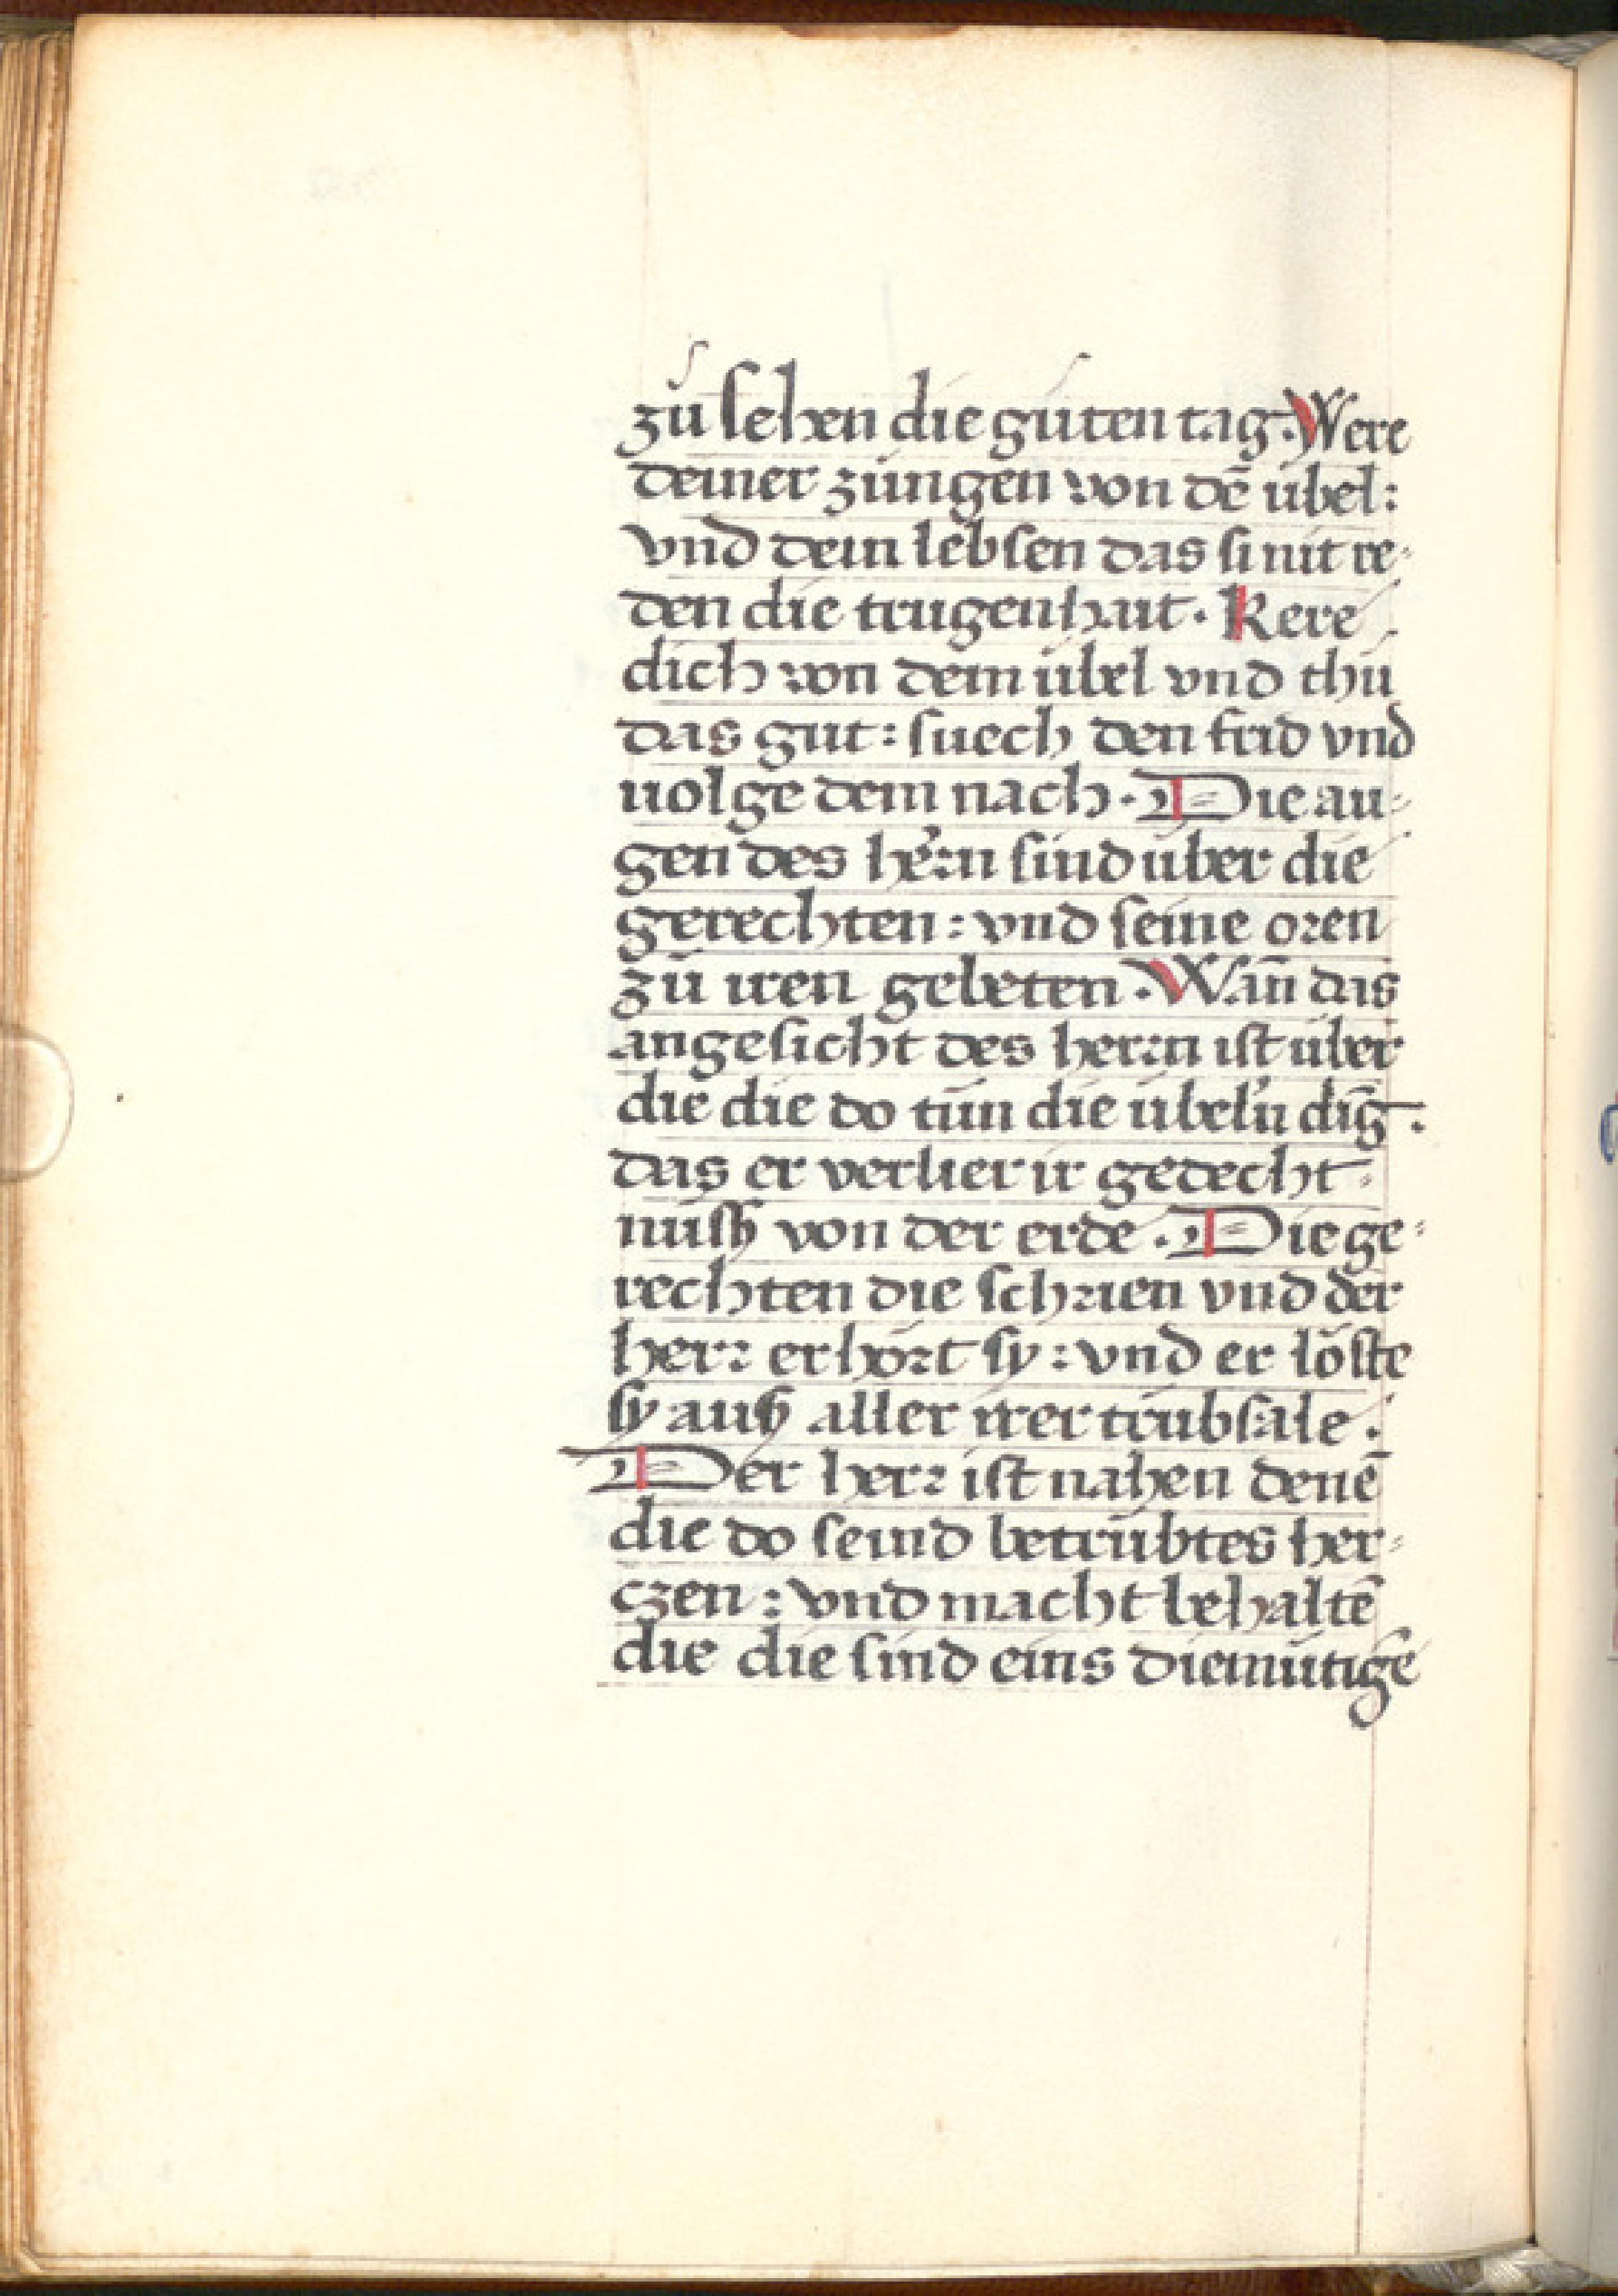 zů sehen die gůten tag. Were
deiner zungen von dē übel:
vnd dein lebsen das si nit re-
den die trugenhait. Kere
dich von dem übel vnd thů
das gut: suech den frid vnd
uolge dem nach. Die au-
gen des herrn sind über die
gerechten: vnd seine oren
zů iren gebeten. Wañ das
angesicht des herrn ist über
die die do tůn die übeln ding.
das er verlier ir gedecht-
nuß von der erde. Die ge-
rechten die schrien vnd der
herr erhört sy: vnd er löste
sy auß aller irer trübsale.
Der herr ist nahen denē
die do seind betrübtes her-
czen: vnd macht behaltē
die die sind eins diemütigē